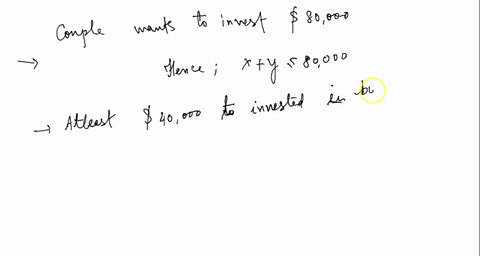 Couple wants to invest $80,000
→ Hence; x+y ≤ 80,000
→ Atleast $40,000 to invested is